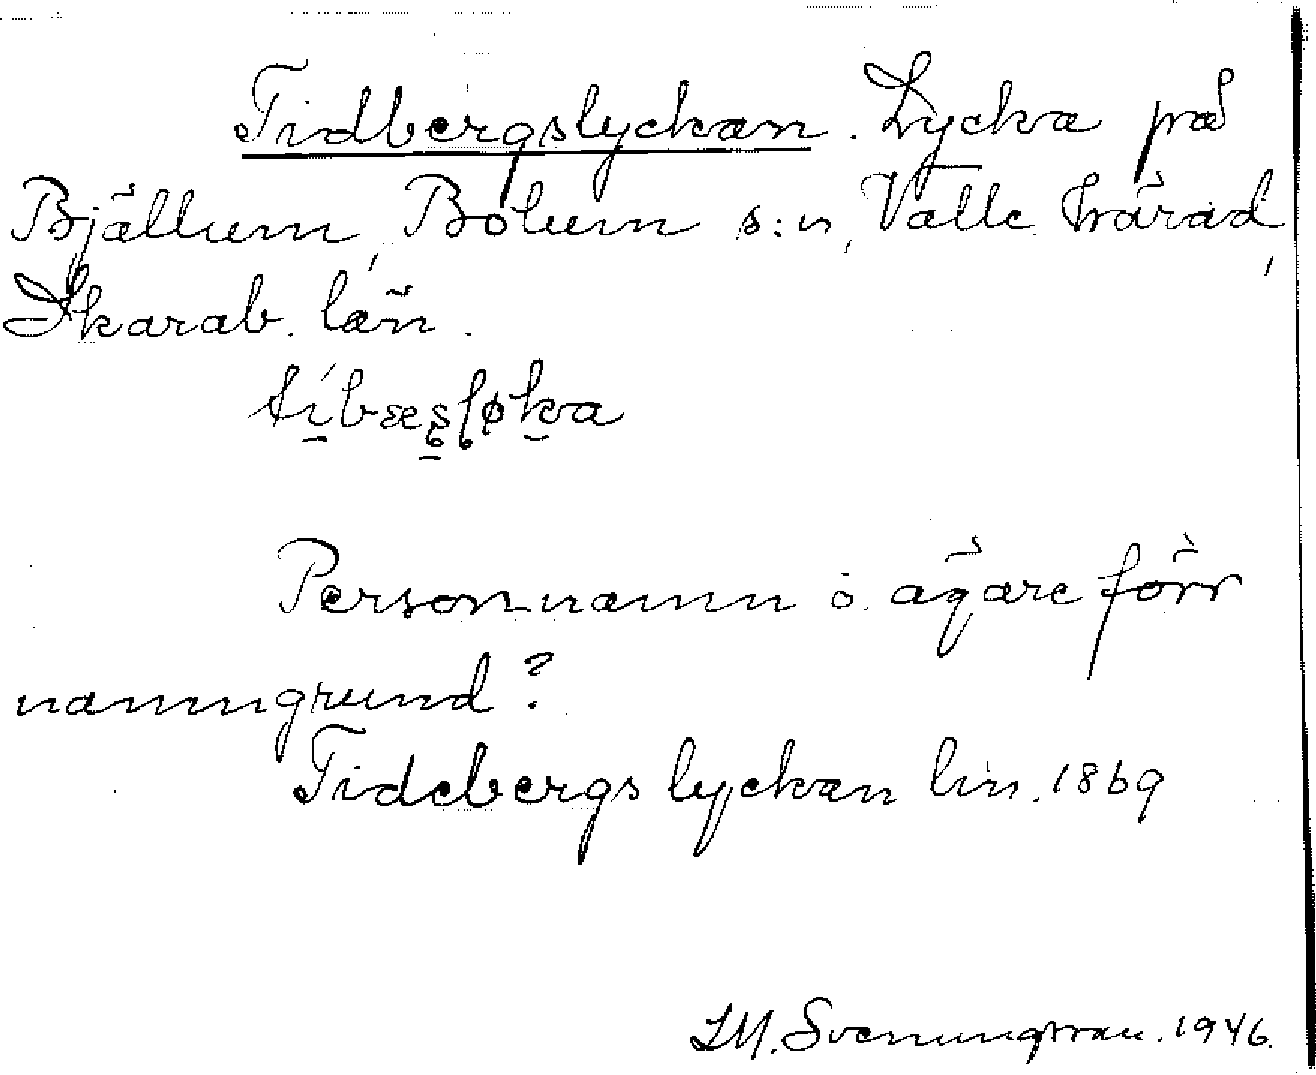 Tidbergslyckan. Lycka på
Bjällum, Bolum s:n, Valle härad,
Skarab. län.
Personnamn o. ägare förr
namngrund?
Tidebergs lyckan lin. 1869
Svenungsson. 1946.